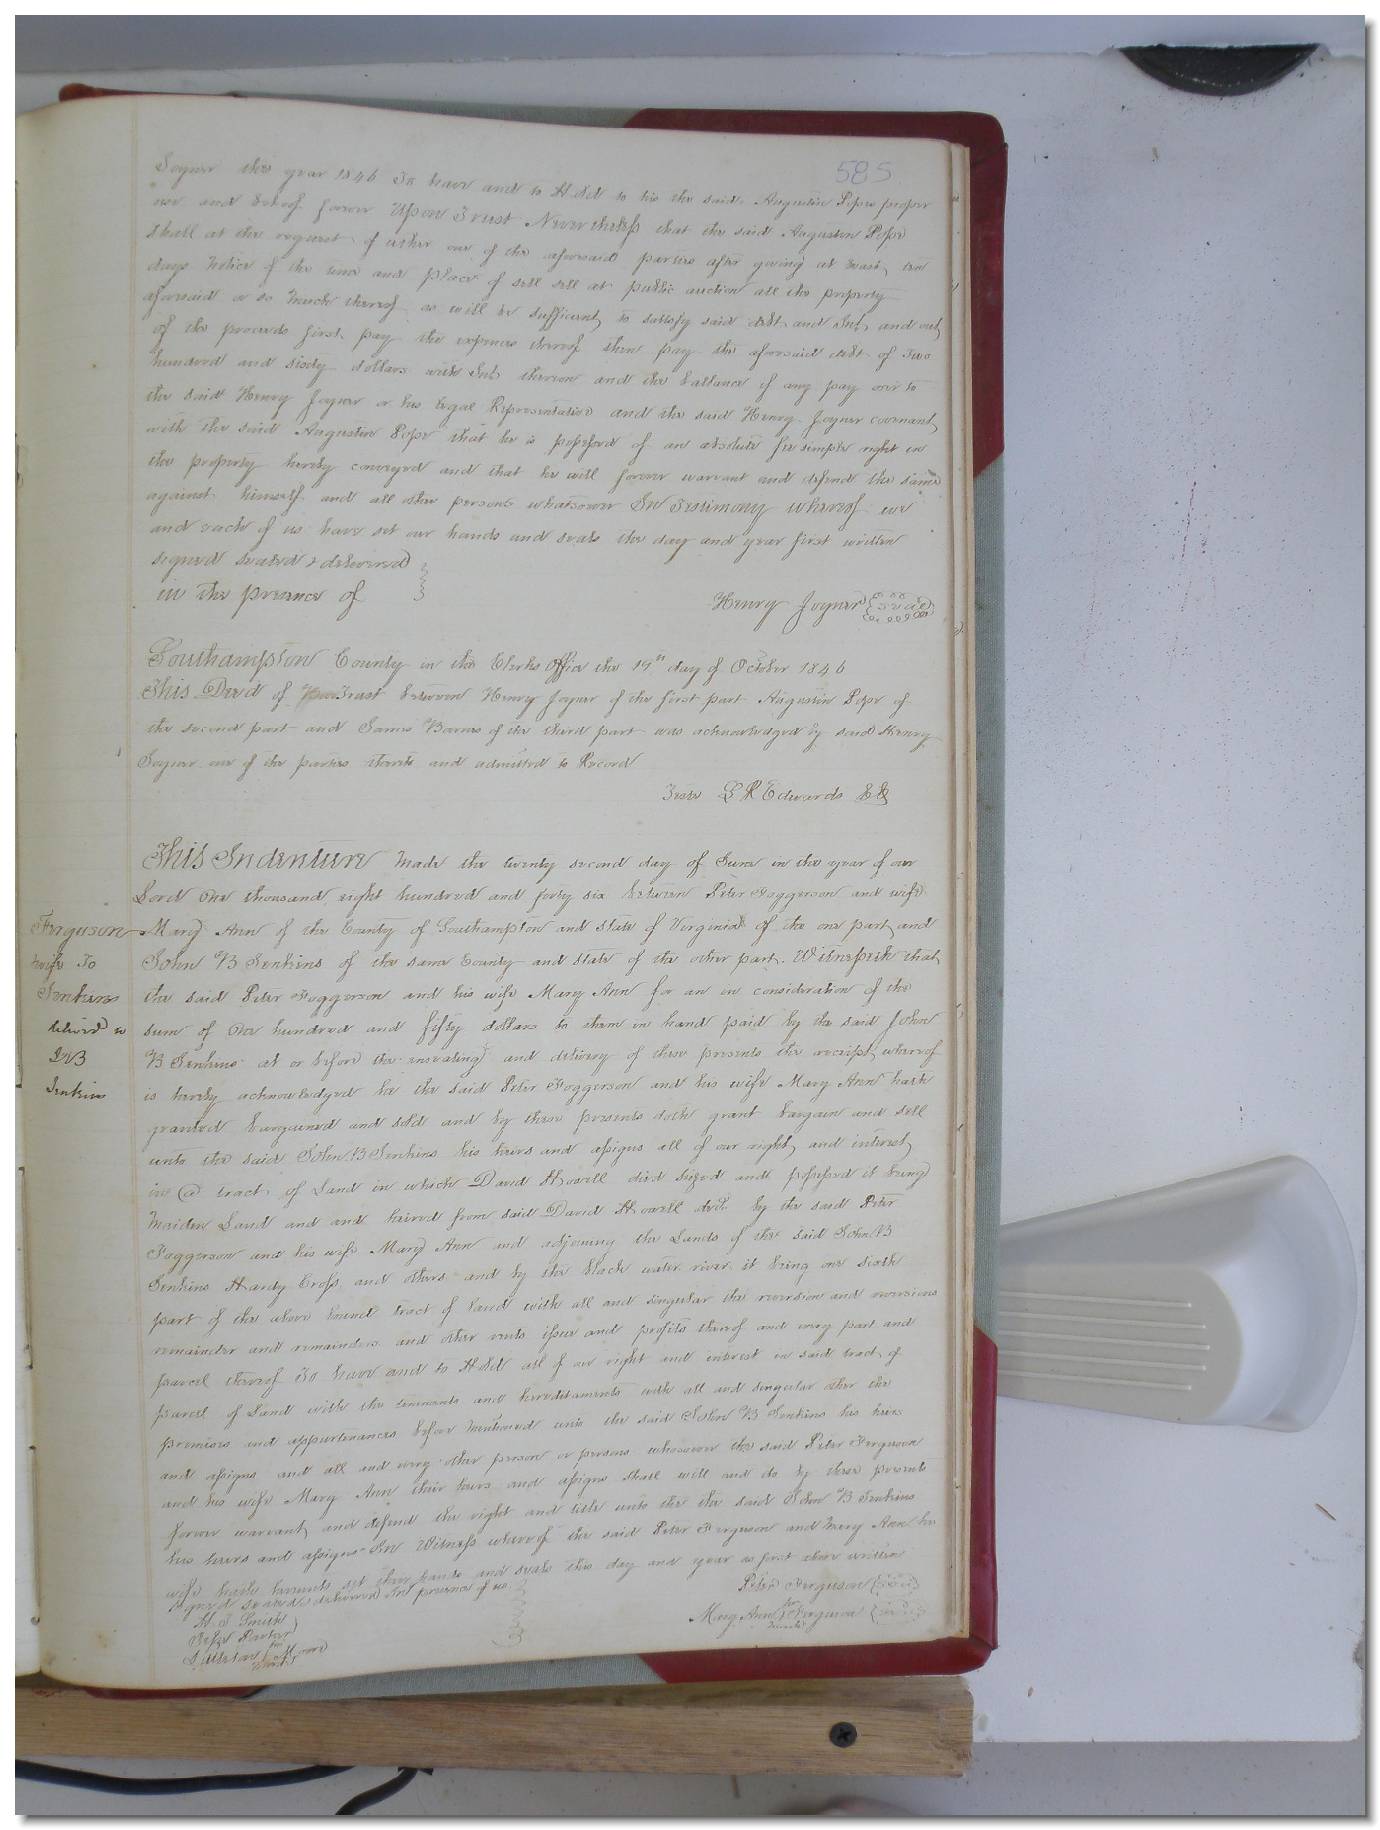 585
Joyner this year 1846 To have and to Hold to his the said Augustin Pope proper
use and behoof forever Upon Trust Nevertheless that the said Augustin Pope
shall at the request of either one of the aforesaid parties after giving at least ten
days notice of the time and place of sell sell at public auction all the property
aforesaid or so much thereof as will be sufficient to satisfy said debt and Int, and out
of the proceeds first pay the expences thereof then pay the aforesaid debt of Two
hundred and sixty dollars with Int. thereon and the ballance if any pay over to
the said Henry Joyner or his legal Representative and the said Henry Joyner covenant
with the said Augustin Pope that he is possessed of an absolute fee simple right in
the property hereby conveyed and that he will forever warrant and defend the same
against himself and all other persons whatsoever In Testimony whereof we
and each of us have set our hands and seals the day and year first written
signed sealed & delivered
in the presence of
Henry Joyner (seal)
Southampton County in the Clerks Office the 19th day of October 1846
This Deed of Trust between Henry Joyner of the first part Augustin Pope of
the second part and James Barnes of the third part was acknowledged by said Henry
Joyner one of the parties thereto and admitted to Record
Teste L R Edwards Clk
This Indenture Made the twenty second day of June in the year of our
Lord One thousand eight hundred and forty six between Peter Foggerson and wife
Ferguson
wife To
Jenkins
Deliv'd to
J B
Jenkins
Mary Ann of the County of Southampton and State of Virginia of the one part and
John B Jenkins of the same County and state of the other part. Witnesseth that
the said Peter Foggerson and his wife Mary Ann for an in consideration of the
sum of One hundred and fifty dollars to them in hand paid by the said John
B Jenkins at or before the ensealing and delivery of these presents the receipt whereof
is hereby acknowledged he the said Peter Foggerson and his wife Mary Ann hath
granted bargained and sold and by these presents doth grant bargain and sell
unto the said John B Jenkins his heirs and assigns all of our right and interest
in @ tract of Land in which David Howell died siezed and possessed it being
Maiden Land and and heired from said David Howell decd. by the said Peter
Foggerson and his wife Mary Ann and adjoining the Lands of the said John B
Jenkins Hardy Cross and others and by the black water river it being one sixth
part of the above bound tract of land with all and singular the reversion and reversions
remainder and remainders and other rents issue and profits thereof and every part and
parcel thereof To have and to Hold all of our right and interest in said tract of
parcel of Land with the tenements and hereditaments with all and singular other the
premises and appurtenances before mentioned unto the said John B Jenkins his heirs
and assigns and all and every other person or persons whosoever the said Peter Ferguson
and his wife Mary Ann their heirs and assigns shall will and do by these presents
forever warrant and defend the right and title unto the the said John B Jenkins
his heirs and assigns In Witness whereof the said Peter Ferguson and Mary Ann his
wife hath hereunto set their hands and seals this day and year as first above written
signed sealed & delivered In presence of us
Peter Ferguson (seal)
Mary Ann her mark Ferguson (seal)
Smith
Moore